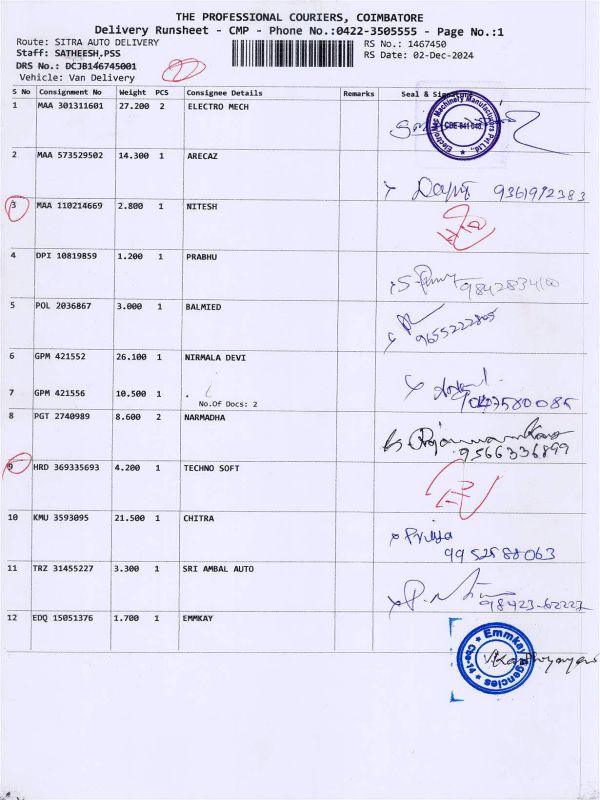 THE PROFESSIONAL COURIERS, COIMBATORE
Delivery Runsheet - CMP - Phone No.:0422-3505555 - Page No.:1
Route: SITRA AUTO DELIVERY
RS No.: 1467450
Staff: SATHEESH.PSS
RS Date: 02-Dec-2024
DRS No.: DCJB146745001
Vehicle: Van Delivery
S No Consignment No Weight PCS Consignee Details Remarks Seal & Signature
1 MAA 301311601 27.200 2 ELECTRO MECH
2 MAA 573529502 14.300 1 ARECAZ
9361912383
3 MAA 110214669 2.800 1 NITESH
4 DPI 10819859 1.200 1 PRABHU
5 POL 2036867 3.000 1 BALMIED
9655222805
6 GPM 421552 26.100 1 NIRMALA DEVI
7 GPM 421556 10.500 1 .
No.Of Docs: 2
8 PGT 2740989 8.600 2 NARMADHA
9566336899
9 HRD 369335693 4.200 1 TECHNO SOFT
10 KMU 3593095 21.500 1 CHITRA
Priya
9952588063
11 TRZ 31455227 3.300 1 SRI AMBAL AUTO
98423-62227
12 EDQ 15051376 1.700 1 EMMKAY
Emmkay Agencies
Cbe-14